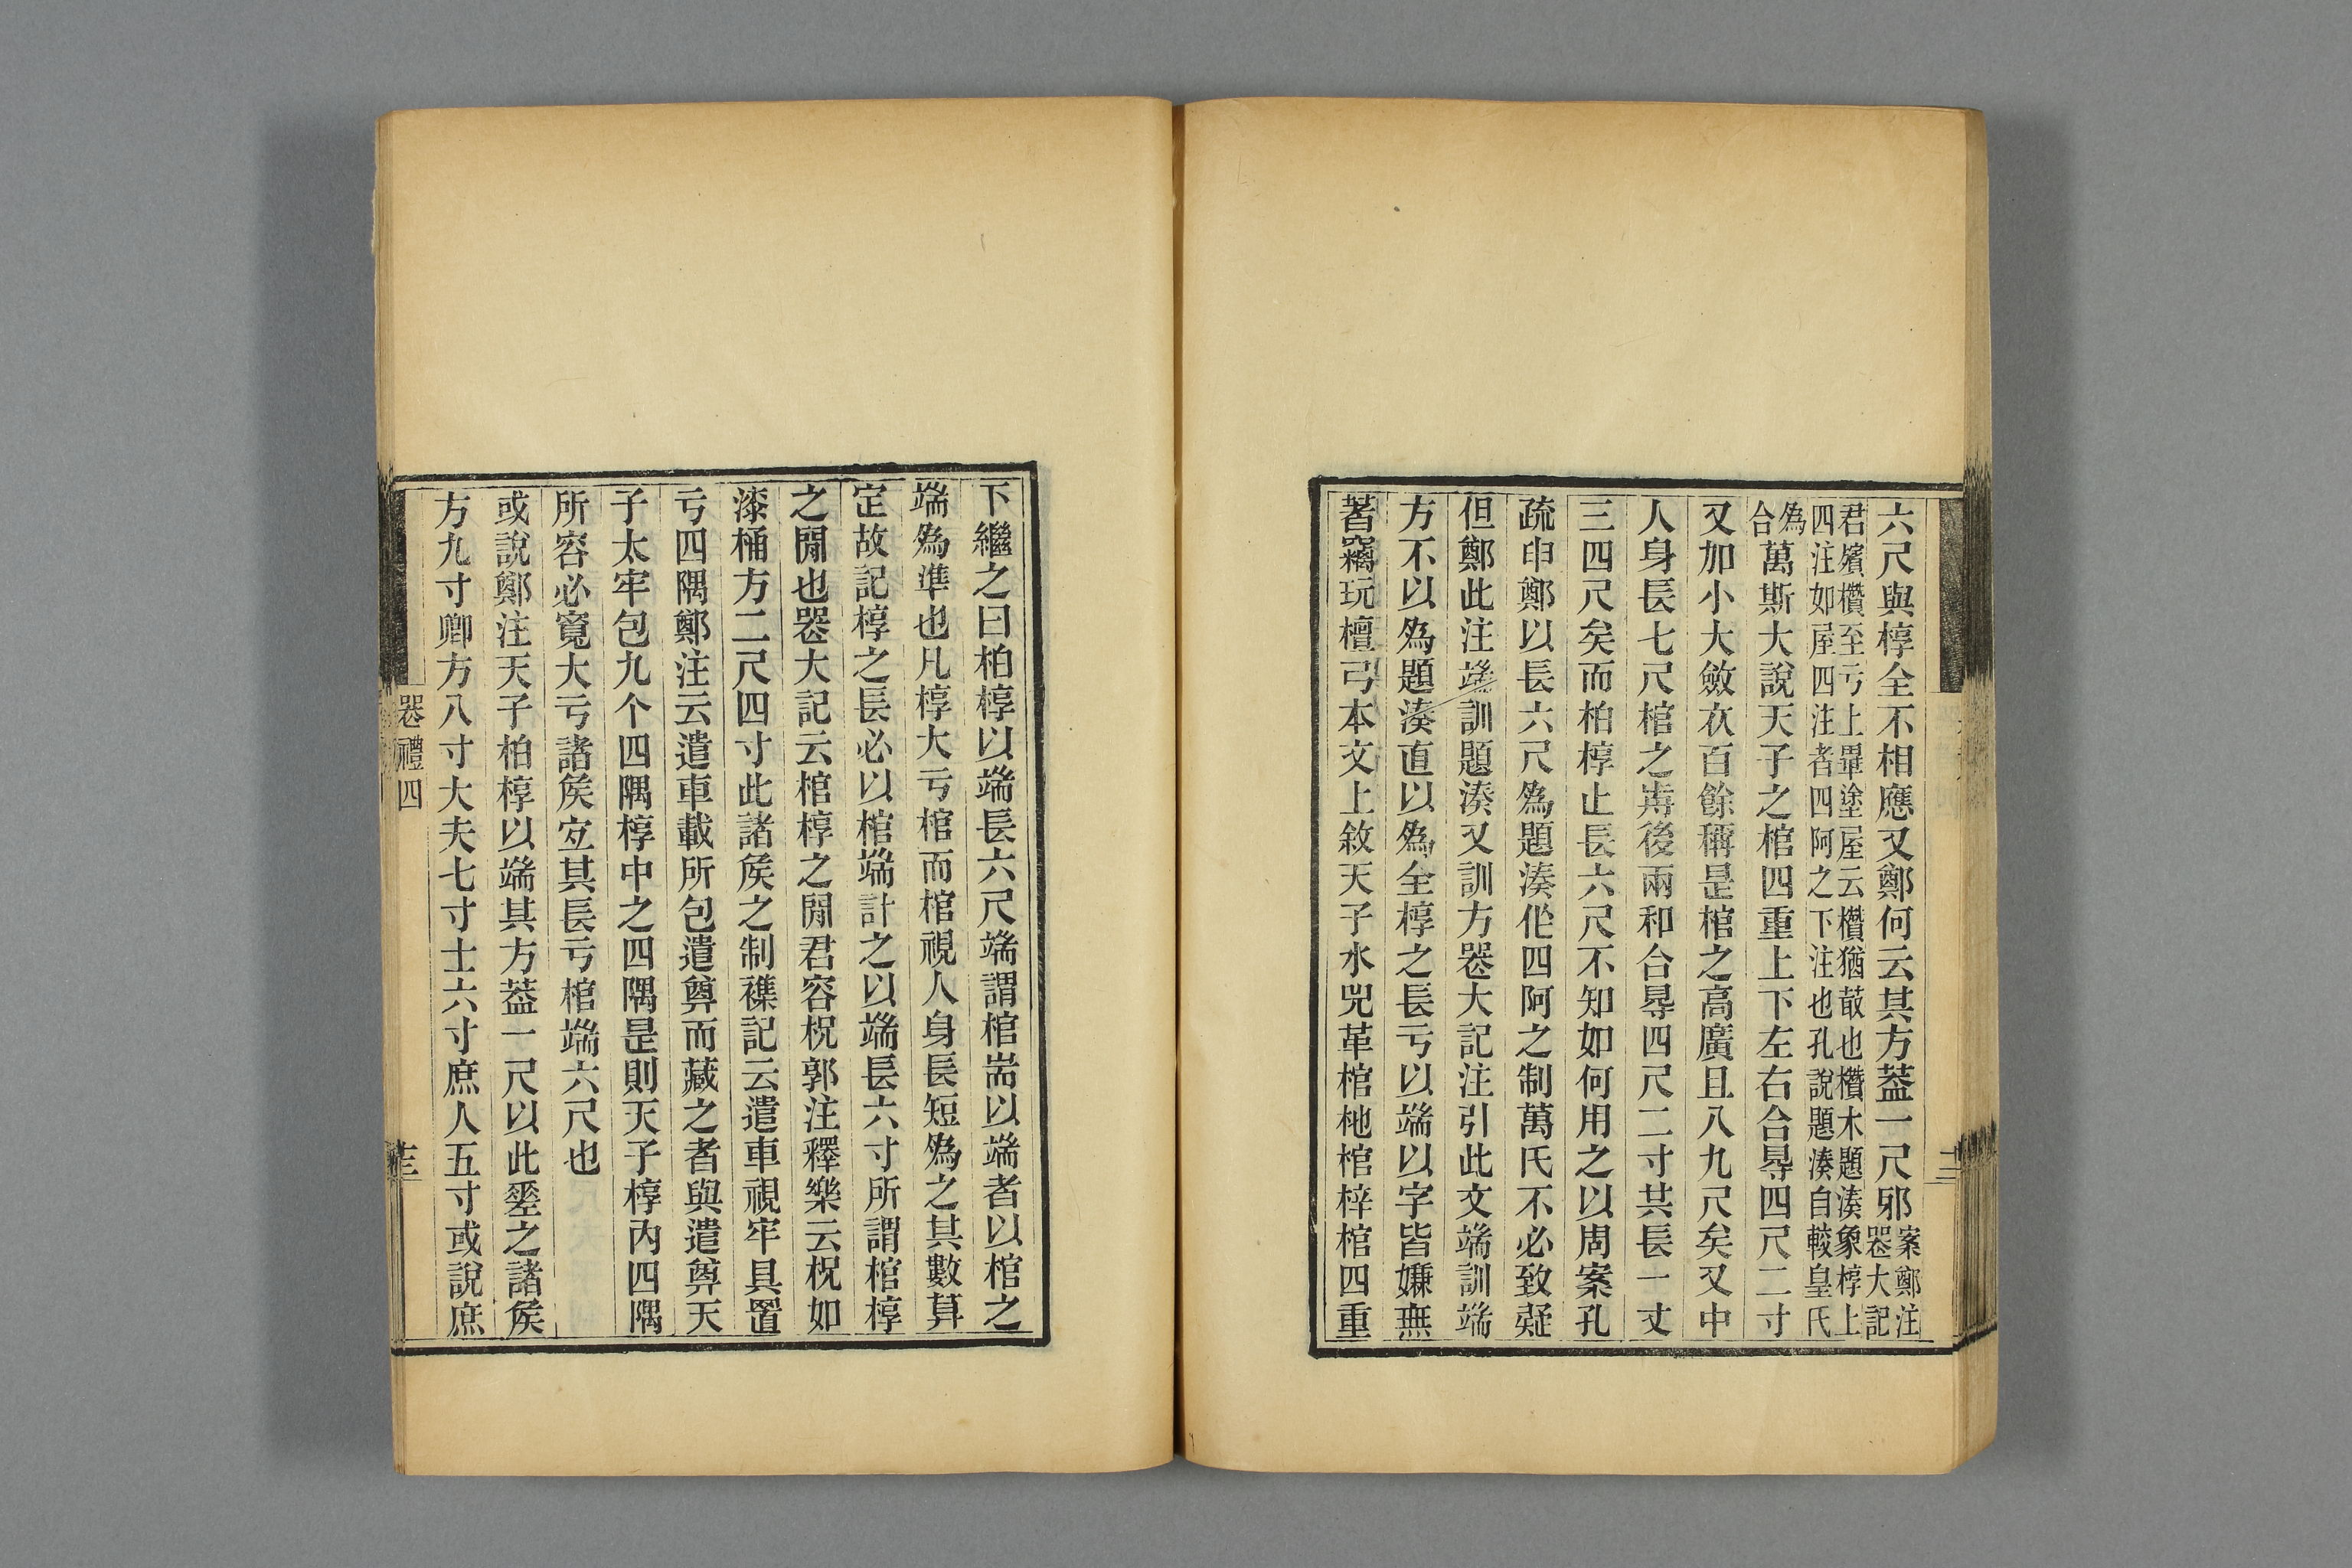 六尺與椁全不相應又鄭何云其方葢一尺邪案鄭注䘮大記
君殯欑至亏上畢塗屋云欑猶菆也欑木題湊象椁上
四注如屋四注者四阿之下注也孔說題湊自較皇氏
爲合萬斯大說天子之棺四重上下左右合㝵四尺二寸
又加小大斂衣百餘稱是棺之高廣且八九尺矣又中
人身長七尺棺之歬後兩和合㝵四尺二寸共長一丈
三四尺矣而柏椁止長六尺不知如何用之以周案孔
疏申鄭以長六尺爲題湊㐵四阿之制萬氏不必致疑
但鄭此注端訓題湊又訓方䘮大記注引此文端訓端
方不以爲題湊直以爲全椁之長亏以端以字皆嫌無
著竊玩檀弓本文上敘天子水兕革棺杝棺梓棺四重
下繼之曰柏椁以端長六尺端謂棺耑以端者以棺之
端爲準也凡椁大亏棺而棺視人身長短爲之其數萛
定故記椁之長必以棺端計之以端長六寸所謂棺椁
之閒也䘮大記云棺椁之閒君容柷郭注釋樂云柷如
漆桶方二尺四寸此諸矦之制襍記云遣車視牢具置
亏四隅鄭注云遣車載所包遣奠而藏之者與遣奠天
子太牢包九个四隅椁中之四隅是則天子椁內四隅
所容必寬大亏諸矦宜其長亏棺端六尺也
或說鄭注天子柏椁以端其方葢一尺以此䇓之諸矦
方九寸卿方八寸大夫七寸士六寸庶人五寸或說庶
䘮禮四